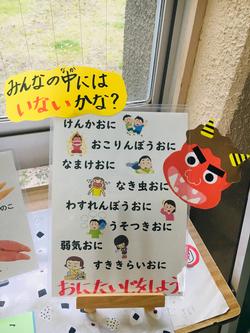 みんなの中には
なか
いないかな?
けんかおに
おこりんぼうおに
なまけおに
なき虫おに
わすれんぼうおに
うそつきおに
弱気おに
すききらいおに
おにたいじをしよう
のこ